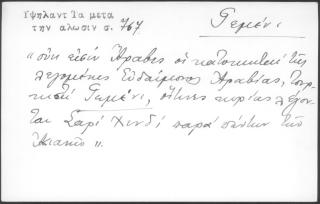 Ὑψηλαντ Τα μετα
την αλωσιν σ. 767
Γεμένι
"οὗτοι εἰσίν Ἄραβες οἱ κατοικοῦντες τῆς
λεγομένης Εὐδαίμονος Ἀραβίας, τουρ-
κιστί Γεμένι, οἵτινες κυρίως λέγον-
ται Σαρί Χινδί παρά πάντων τῶν
".